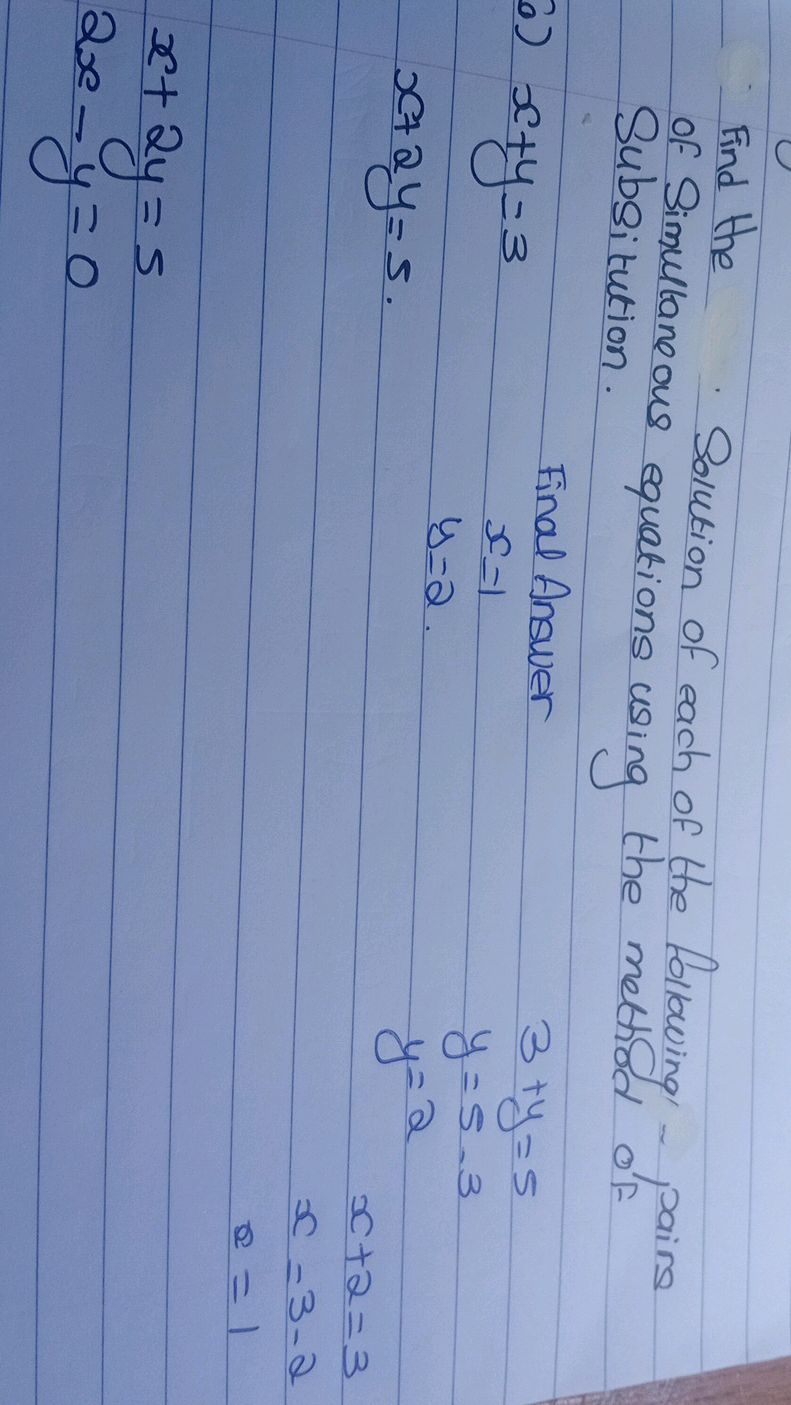 Find the Solution of each of the following - pairs
of Simultaneous equations using the method of
Subsitution.
a) x+y=3
x+2y=5.
Final Answer
x=1
y=2.
3+y=5
y=5-3
y=2
x+2=3
x=3-2
x=1
x+2y=5
2x-y=0